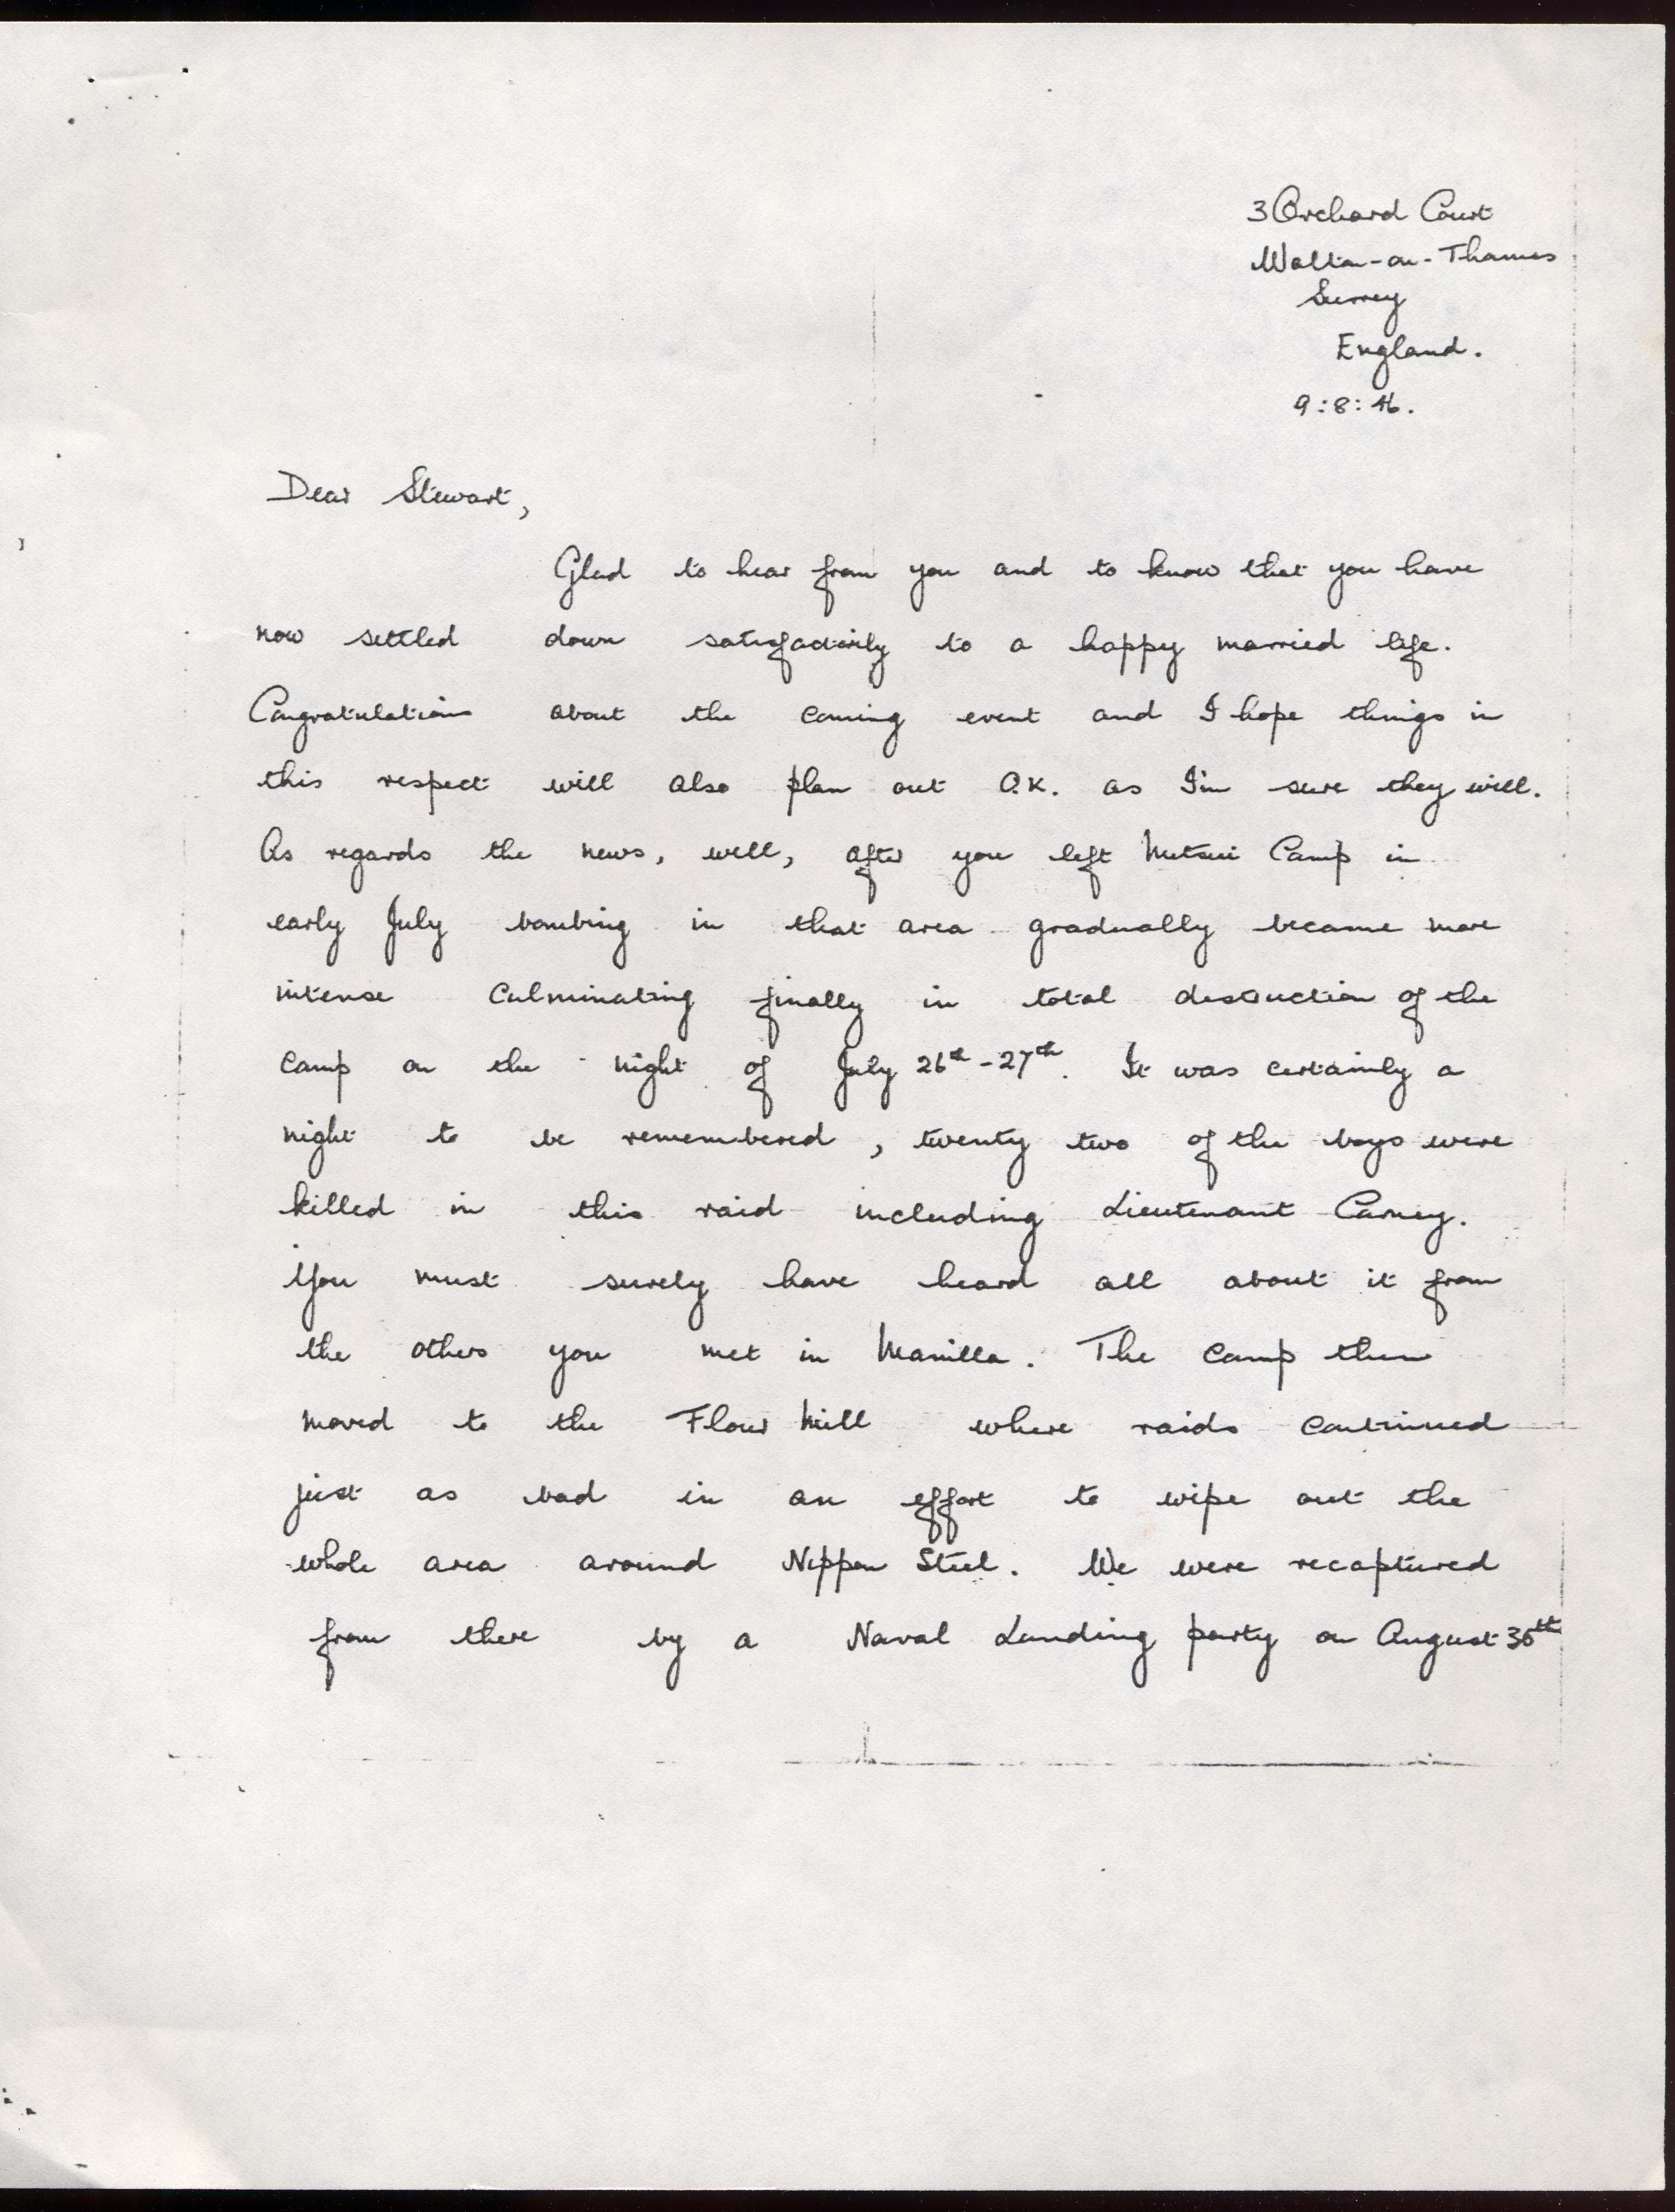 3 Orchard Court
Walton-on-Thames
Surrey
England.
9:8:46.
Dear Stewart,
Glad to hear from you and to know that you have
now settled down satisfactorily to a happy married life.
Congratulations about the coming event and I hope things in
this respect will also plan out O.K. as I'm sure they will.
As regards the news, well, after you left Mitsui Camp in
early July bombing in that area gradually became more
intense culminating finally in total destruction of the
camp on the night of July 26th-27th. It was certainly a
night to be remembered, twenty two of the boys were
killed in this raid including Lieutenant Carney.
You must surely have heard all about it from
the others you met in Manilla. The camp then
moved to the Flour Mill where raids continued
just as bad in an effort to wipe out the
whole area around Nippon Steel. We were recaptured
from there by a Naval Landing party on August 30th